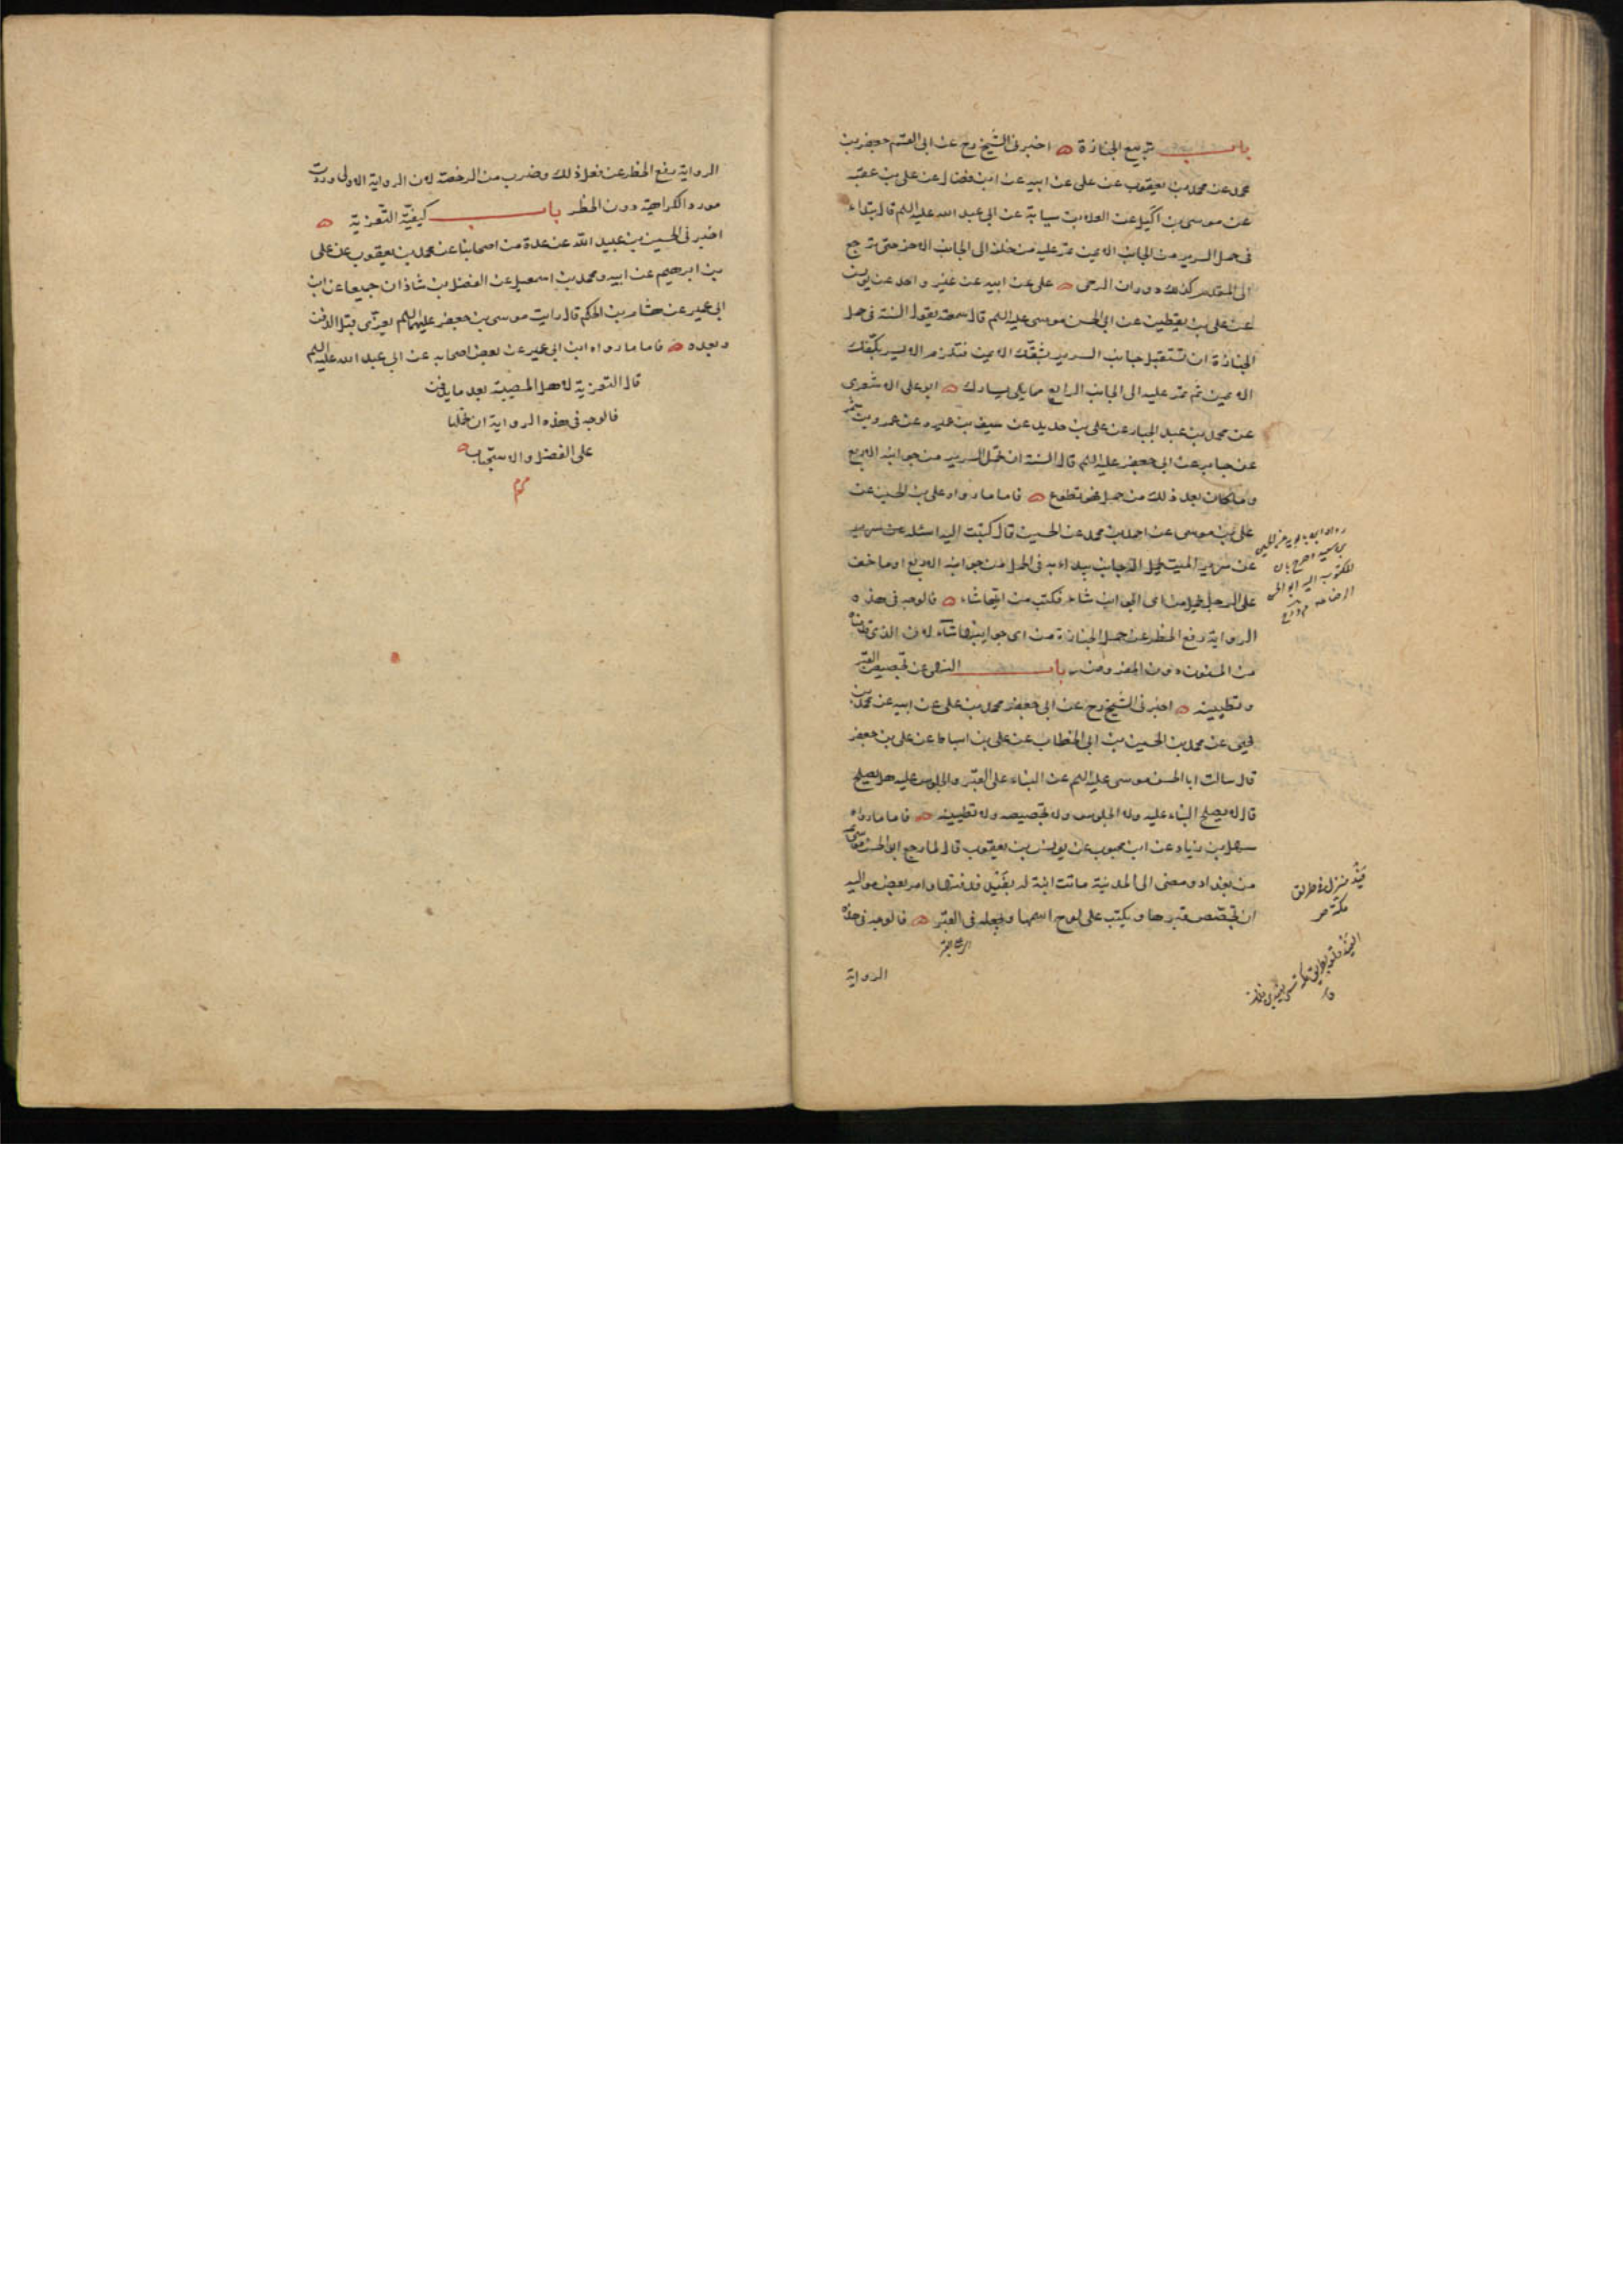 باب تربيع الجنازة اخبرنى الشيخ رح عن ابى القسم جعفر بن
محمد عن محمد بن يعقوب عن على عن ابيه عن ابن فضال عن على بن عقبه
عن موسى بن اكيل عن العلاء بن سيابة عن ابى عبد الله عليه السلم قال يبتداء
فى حمل السرير من الجانب الايمن ثم تمر عليه من خلفه الى الجانب الاخر حتى ترجع
الى المقدم كذلك دوران الرحى على عن ابيه عن غير واحد عن يونس
عن على بن يقطين عن ابى الحسن موسى عليه السلم قال سمعته يقول السنة فى حمل
الجنازة ان تستقبل جانب السرير بشقك الايمن فتلزم الايسر بكتفك
الايمن ثم تمر عليه الى الجانب الرابع مما يلى يسارك ابو على الاشعرى
عن محمد بن عبد الجبار عن على بن حديد عن سيف بن عميره عن عمرو بن شمر
عن جابر عن ابى جعفر عليه السلم قال السنة ان تحمل السرير من جوانبه الاربع
وما كان بعد ذلك من حمل فهو تطوع فاما ما رواه على بن الحسين عن
على بن موسى عن احمد بن محمد عن الحسين قال كتبت اليه اسئله عن سرير
عن سرير الميت يحمل اله جانب يبداء به فى الحمل من جوانبه الاربع او ما خف
على الرجل يحمل من اى الجوانب شاء فكتب من ايها شاء فالوجه فى هذه
الرواية رفع الحظر عن حمل الجنازة من اى جوانبها شاء لان الذى قدمناه
من المسنون دون المفروض باب النهى عن تجصيص القبر
وتطيينه اخبرنى الشيخ رح عن ابى جعفر محمد بن على عن ابيه عن محمد بن
يحيى عن محمد بن الحسين بن ابى الخطاب عن على بن اسباط عن على بن جعفر
قال سالت ابا الحسن موسى عليه السلم عن البناء على القبر والجلوس عليه هل يصلح
قال لا يصلح البناء عليه ولا الجلوس ولا تجصيصه ولا تطيينه فاما ما رواه
سهل بن زياد عن ابن محبوب عن يونس بن يعقوب قال لما رجع ابو الحسن موسى
من بغداد ومضى الى المدينة ماتت ابنة له بفيد فدفنها وامر بعض مواليه
ان تجصص قبرها ويكتب على لوح اسمها ويجعله فى القبر فالوجه فى هذه
الرواية
رواه ابن بابويه عن الحسين
بن سعيد وصرح بان
المكتوب اليه ابو الحسن
الرضا
فيد منزل فى طريق
مكة
الرواية رفع الحظر عن فعل ذلك وضرب من الرخصة لان الرواية الاولى وردت
مورد الكراهية دون الحظر باب كيفية التعزية
اخبرنى الحسين بن عبيد الله عن عدة من اصحابنا عن محمد بن يعقوب عن على
بن ابرهيم عن ابيه ومحمد بن اسمعيل عن الفضل بن شاذان جميعا عن ابن
ابى عمير عن هشام بن الحكم قال رايت موسى بن جعفر عليهما السلم يعزى قبل الدفن
وبعده فاما ما رواه ابن ابى عمير عن بعض اصحابه عن ابى عبد الله عليه السلم
قال التعزية لاهل المصيبة بعد ما يدفن
فالوجه فى هذه الرواية ان نحملها
على الفضل والاستحباب